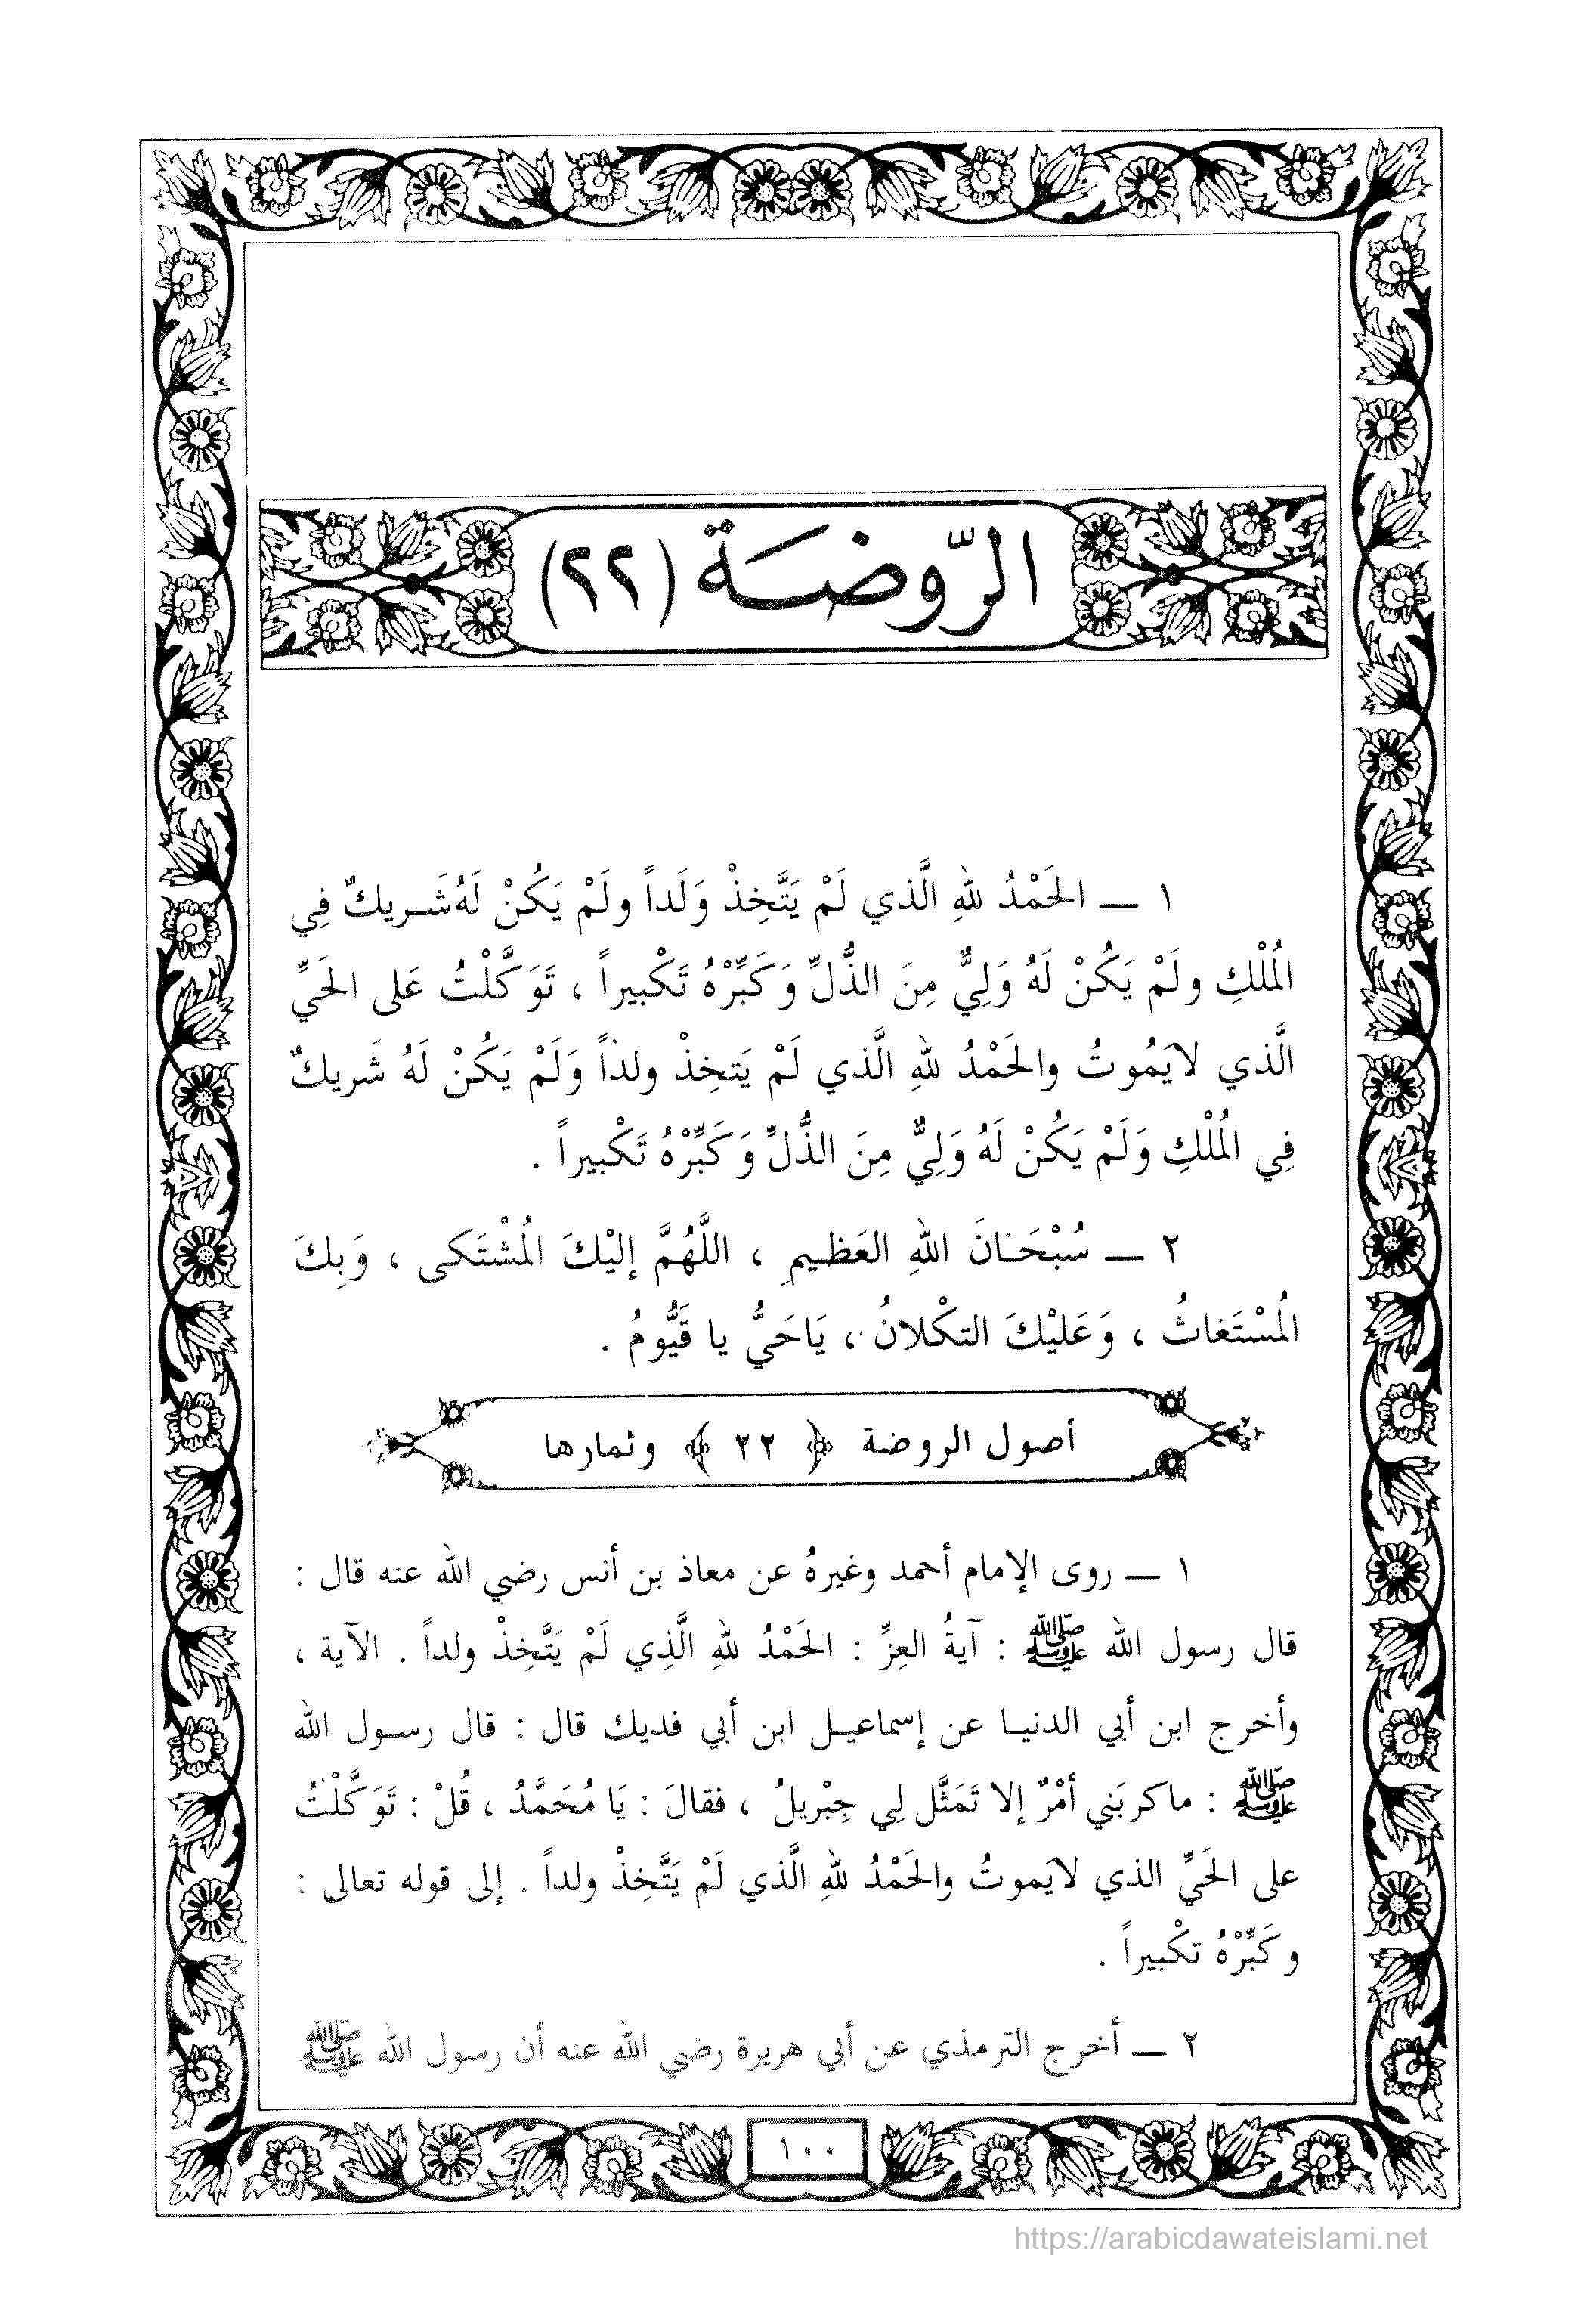 الرّوضة (٢٢)
١ ـ الحَمْدُ للهِ الَّذي لَمْ يَتَّخِذْ وَلَداً ولَمْ يَكُنْ لَهُ شَريكٌ فِي
المُلْكِ ولَمْ يَكُنْ لَهُ وَلِيٌّ مِنَ الذُّلِّ وَكَبِّرْهُ تَكْبيراً ، تَوَكَّلْتُ عَلى الحَيِّ
الَّذي لايَمُوتُ والحَمْدُ للهِ الَّذي لَمْ يَتخِذْ ولداً وَلَمْ يَكُنْ لَهُ شَريكٌ
فِي المُلْكِ وَلَمْ يَكُنْ لَهُ وَلِيٌّ مِنَ الذُّلِّ وَكَبِّرْهُ تَكْبيراً .
٢ ـ سُبْحَانَ اللهِ العَظيمِ ، اللَّهُمَّ إليْكَ المُشْتَكى ، وَبِكَ
المُسْتَغاثُ ، وَعَليْكَ التكْلانُ ، يَاحَيُّ يا قَيُّومُ .
أصول الروضة ﴿ ٢٢ ﴾ وثمارها
١ ـ روى الإمام أحمد وغيرهُ عن معاذ بن أنس رضي الله عنه قال :
قال رسول الله ﷺ : آيةُ العِزِّ : الحَمْدُ للهِ الَّذِي لَمْ يَتَّخِذْ ولداً . الآية ،
وأخرج ابن أبي الدنيا عن إسماعيل ابن أبي فديك قال : قال رسول الله
ﷺ : ماكربَني أمْرٌ إلا تَمَثَّل لِي جِبْريلُ ، فقالَ : يَا مُحَمَّدُ ، قُلْ : تَوَكَّلْتُ
على الحَيِّ الذي لايَموتُ والحَمْدُ للهِ الَّذي لَمْ يَتَّخِذْ ولداً . إلى قوله تعالى :
وكَبِّرْهُ تكْبيراً .
٢ ـ أخرج الترمذي عن أبي هريرة رضي الله عنه أن رسول الله ﷺ
١٠٠
https://arabicdawateislami.net